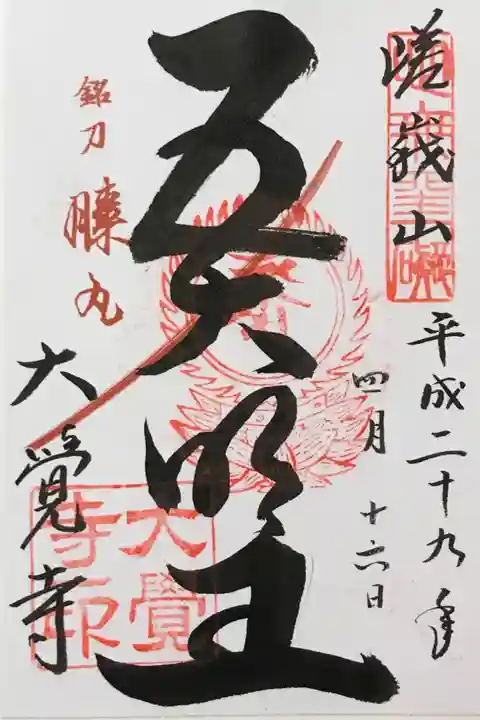 嵯峩山
平成二十九年
四月
十六日
五大明王
銘刀
膝丸
大覚寺
大覺
寺印